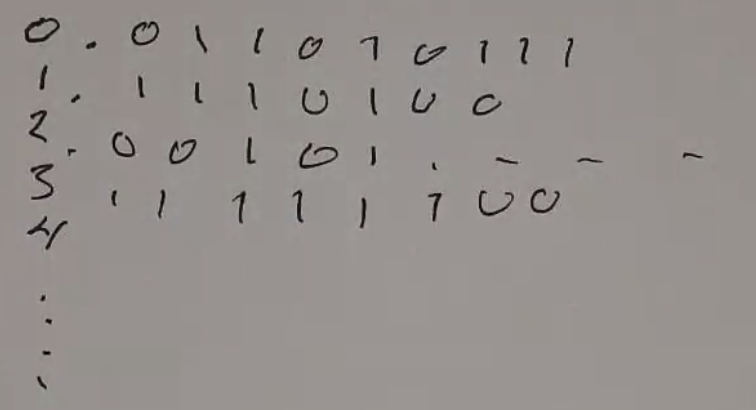 0 . 0 1 1 0 1 0 1 1 1
1 . 1 1 1 0 1 0 0
2 . 0 0 1 0 1 . - - -
3 . 1 1 1 1 1 0 0
4